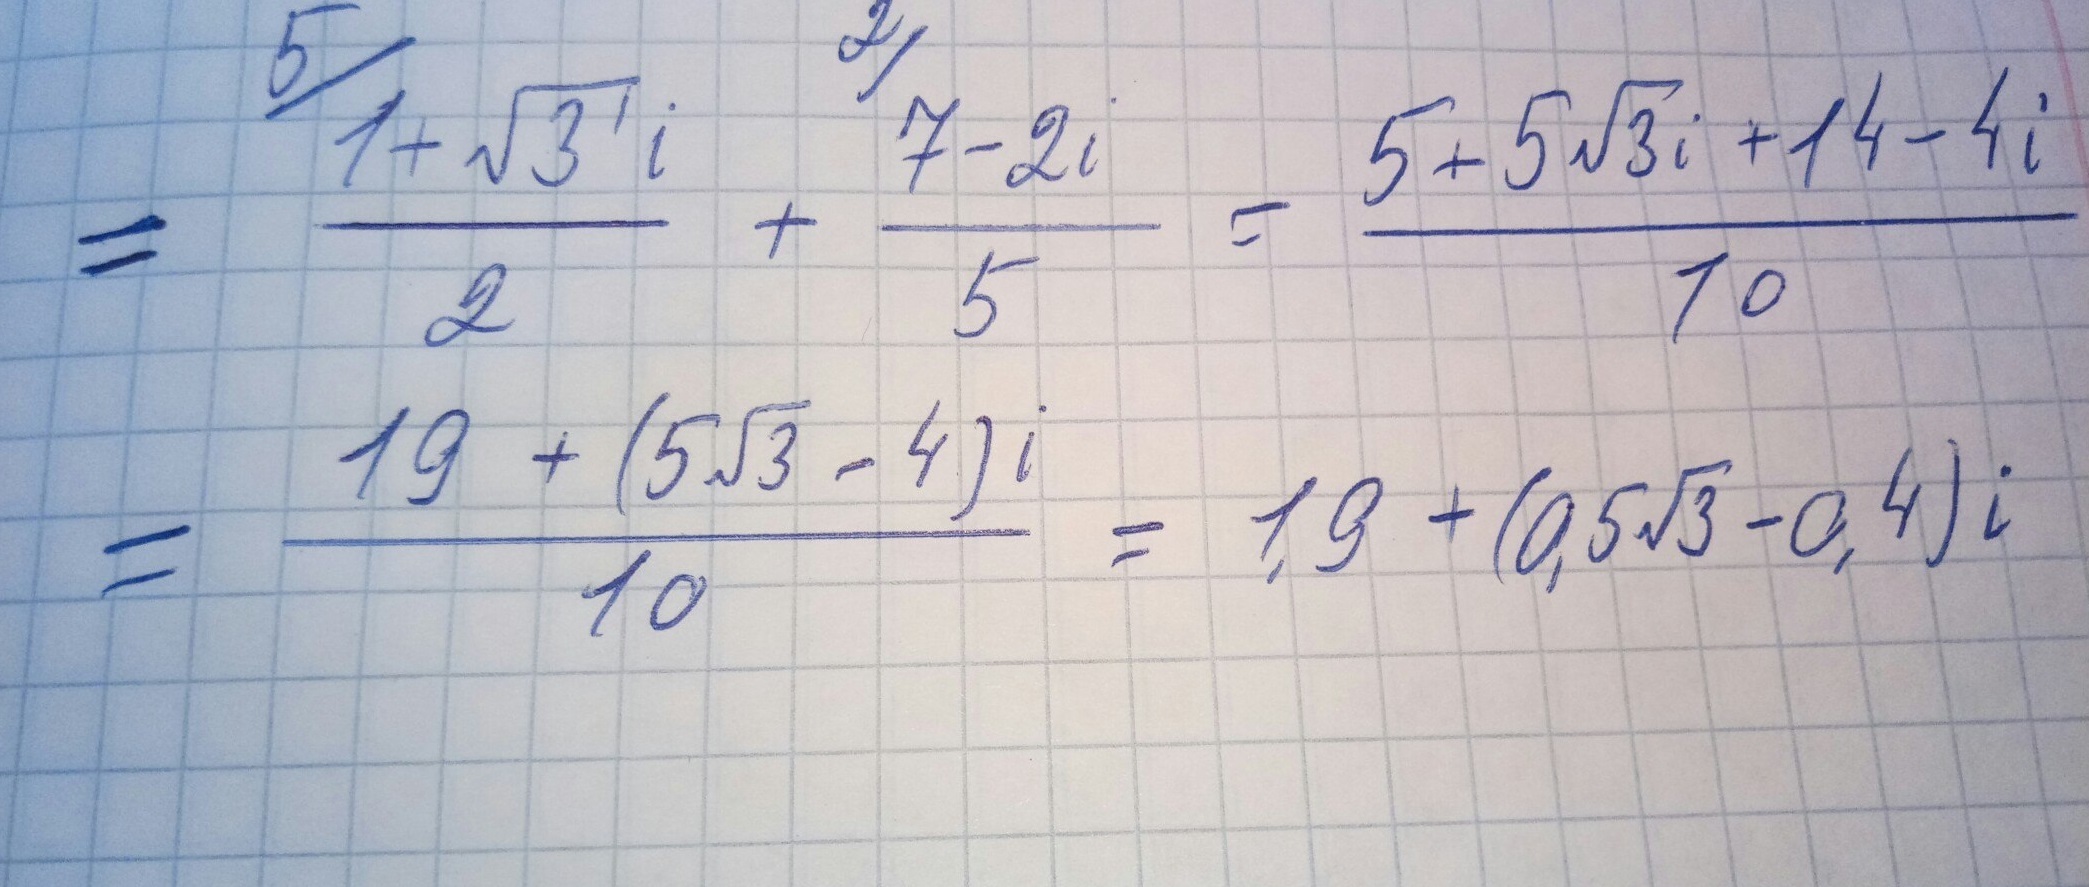 = 5/ (1+√3 i)/2 + 2/ (7-2i)/5 = (5+5√3i+14-4i)/10
= (19+(5√3-4)i)/10 = 1,9+(0,5√3-0,4)i